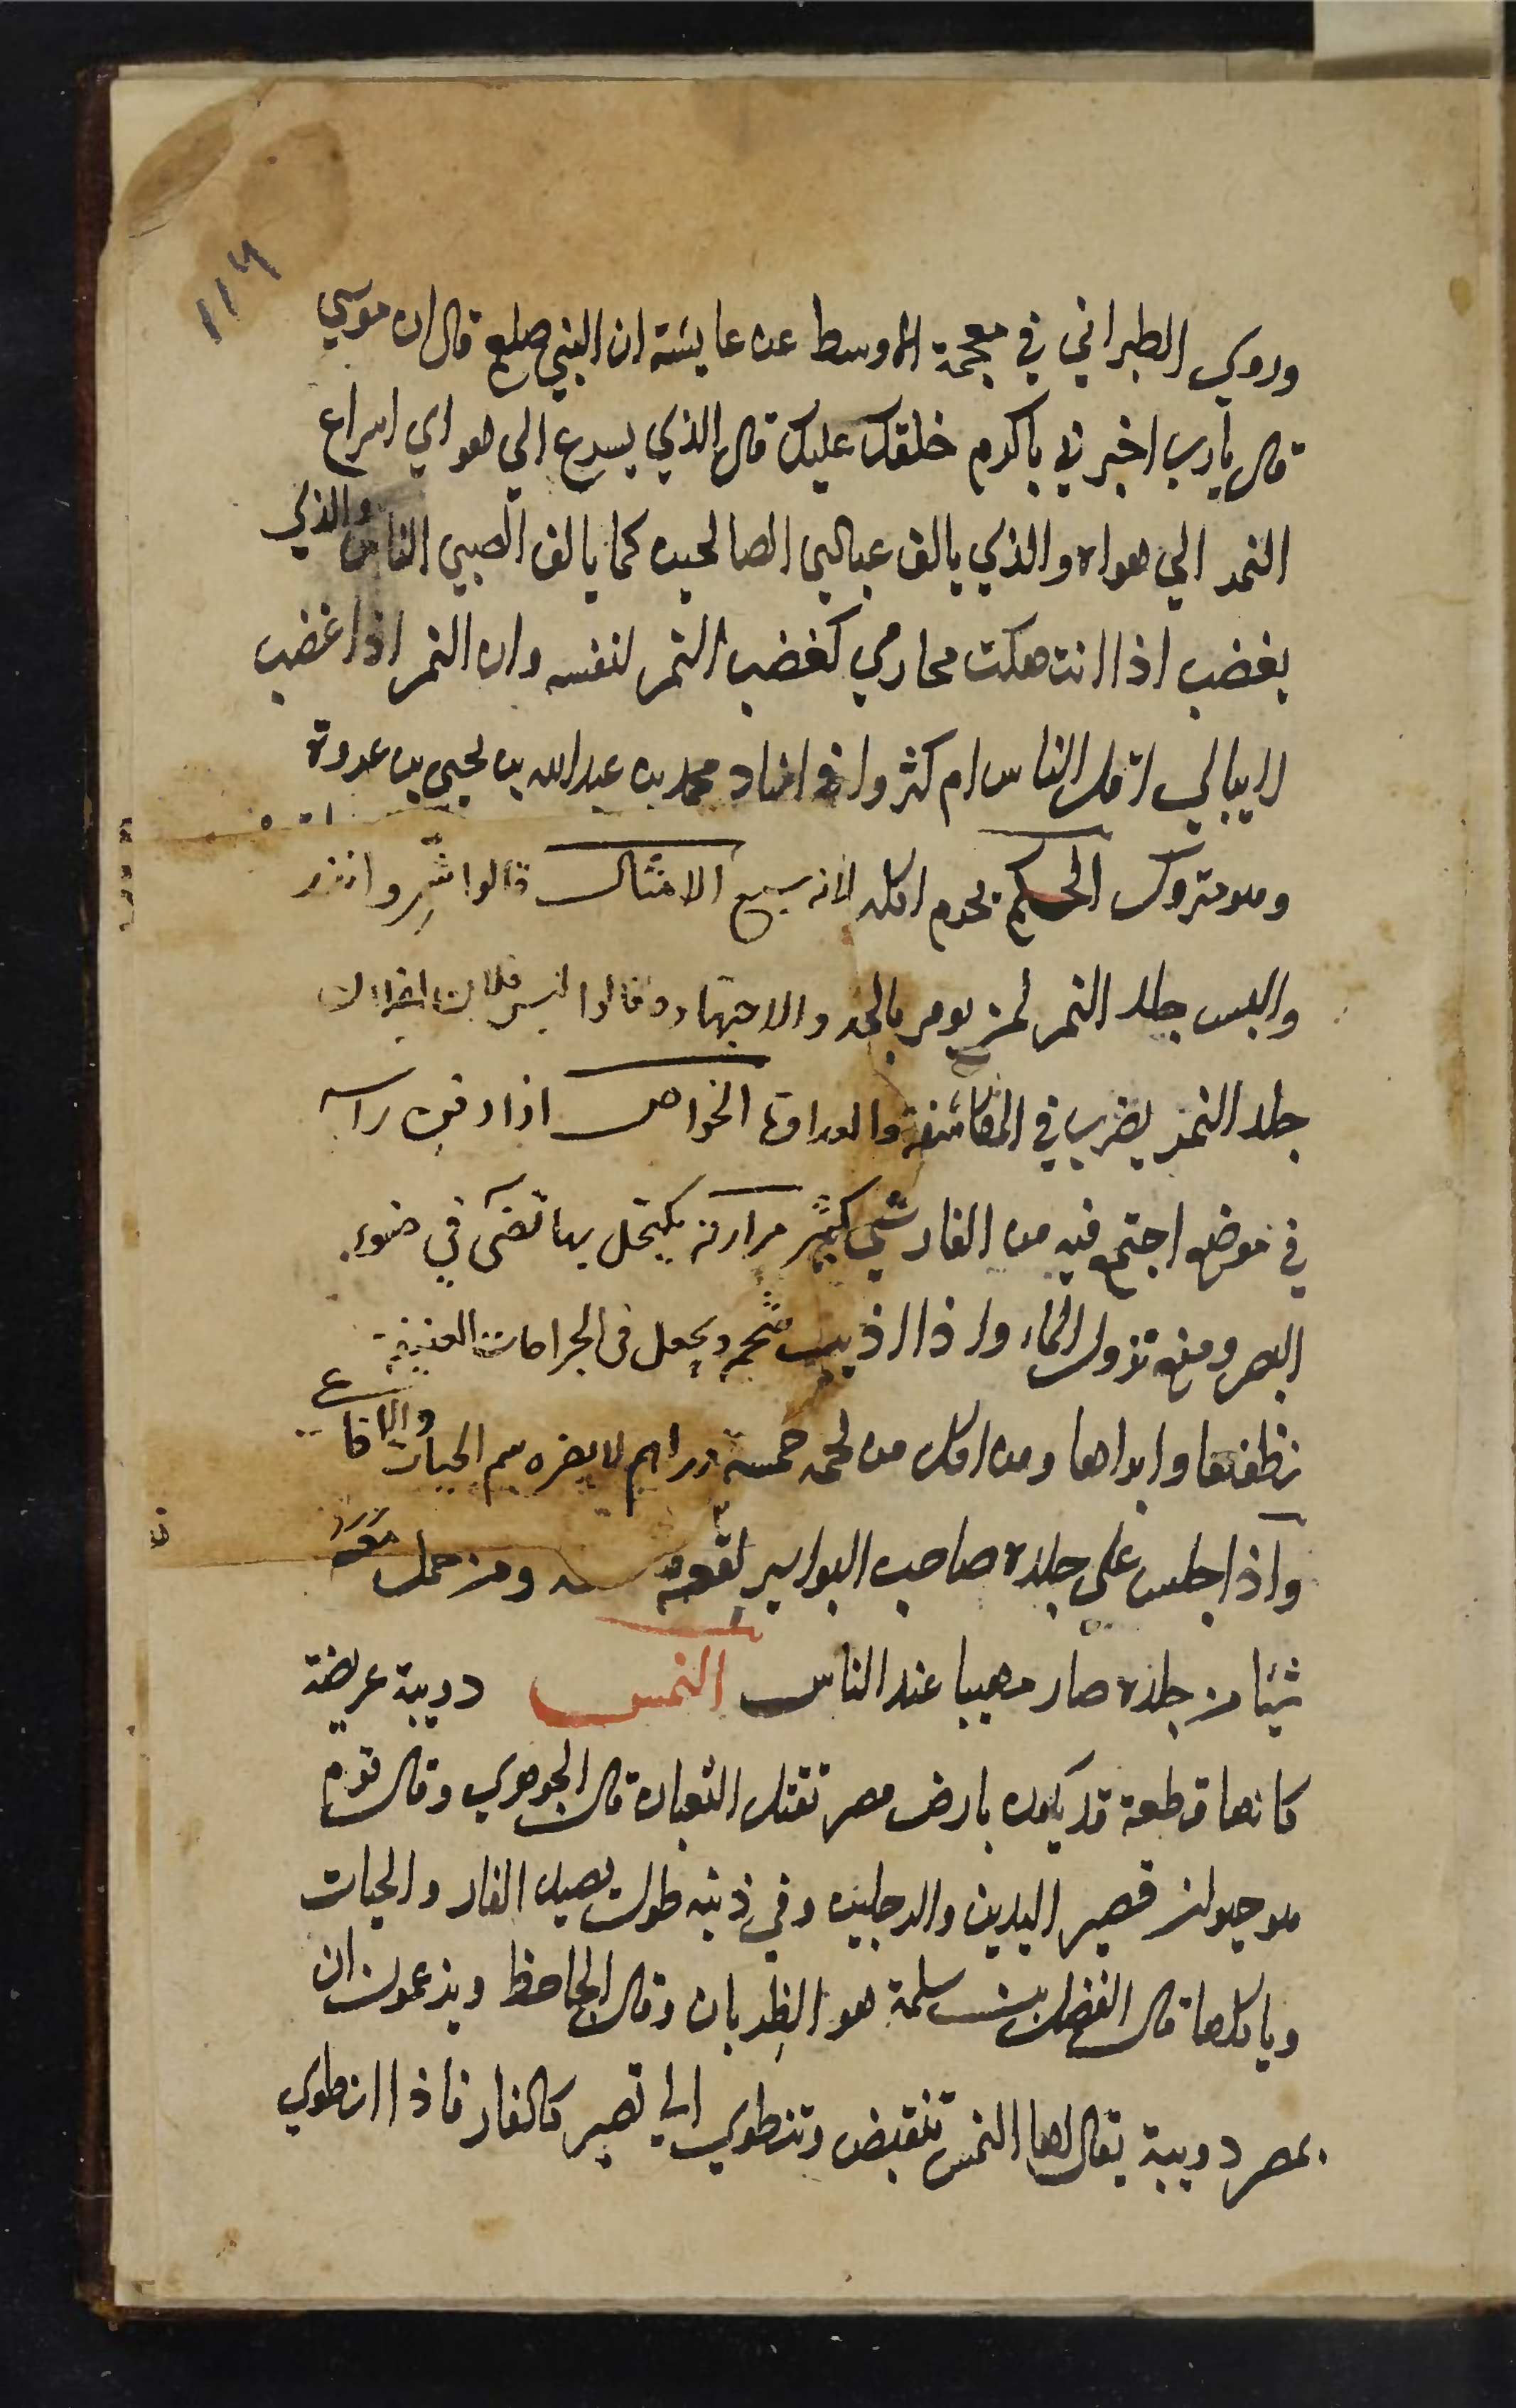 ١١٦
وروي الطبراني في معجمة الاوسط عن عايشة ان النبي صلعم قال ان موسي
قال يارب اخبرني باكرم خلقك عليك قال الذي يسرع الي هواي اسراع
النمر الي هواه والذي يالف عبادي الصالحين كما يالف الصبي الناس والذي
يغضب اذا انتهكت محارمي كغضب النمر لنفسه وان النمر اذا غضب
لا يبالي اقل الناس ام كثروا في اسناده محمد بن عبد الله بن يحيي بن عروة
وهو متروك الحكم يحرم اكله لانه سبع الامثال قالوا شمر واتزر
والبس جلد النمر لمن يومر بالجد والاجتهاد وقالوا لبس فلان لفلان
جلد النمر يضرب في المكاشفة والعداوة الخواص اذا دفن راسه
في موضع اجتمع فيه من الفار شي كثير مرارته يكتحل بها تضي في ضوء
البصر ومنع نزول الماء واذا اذيب شحمه ويجعل في الجراحات العتيقة
نظفها وابراها ومن اكل من لحمه خمسة دراهم لا يضره سم الحيات والافاعي
واذا جلس علي جلده صاحب البواسير نفعه ومن حمل معه
شيئا من جلده صار مهيبا عند الناس النمس دويبة عريضة
كانها قطعة قديد يكون بارض مصر تقتل الثعبان قال الجوهري وقال قوم
هو حيوان قصير اليدين والرجلين وفي ذنبه طول يصيد الفار والحيات
وياكلها قال الفضل بن سلمة هو الظربان وقال الجاحظ ويزعمون ان
بمصر دويبة يقال لها النمس تنقبض وتنطوي الي تصير كالفار فاذا انطوي